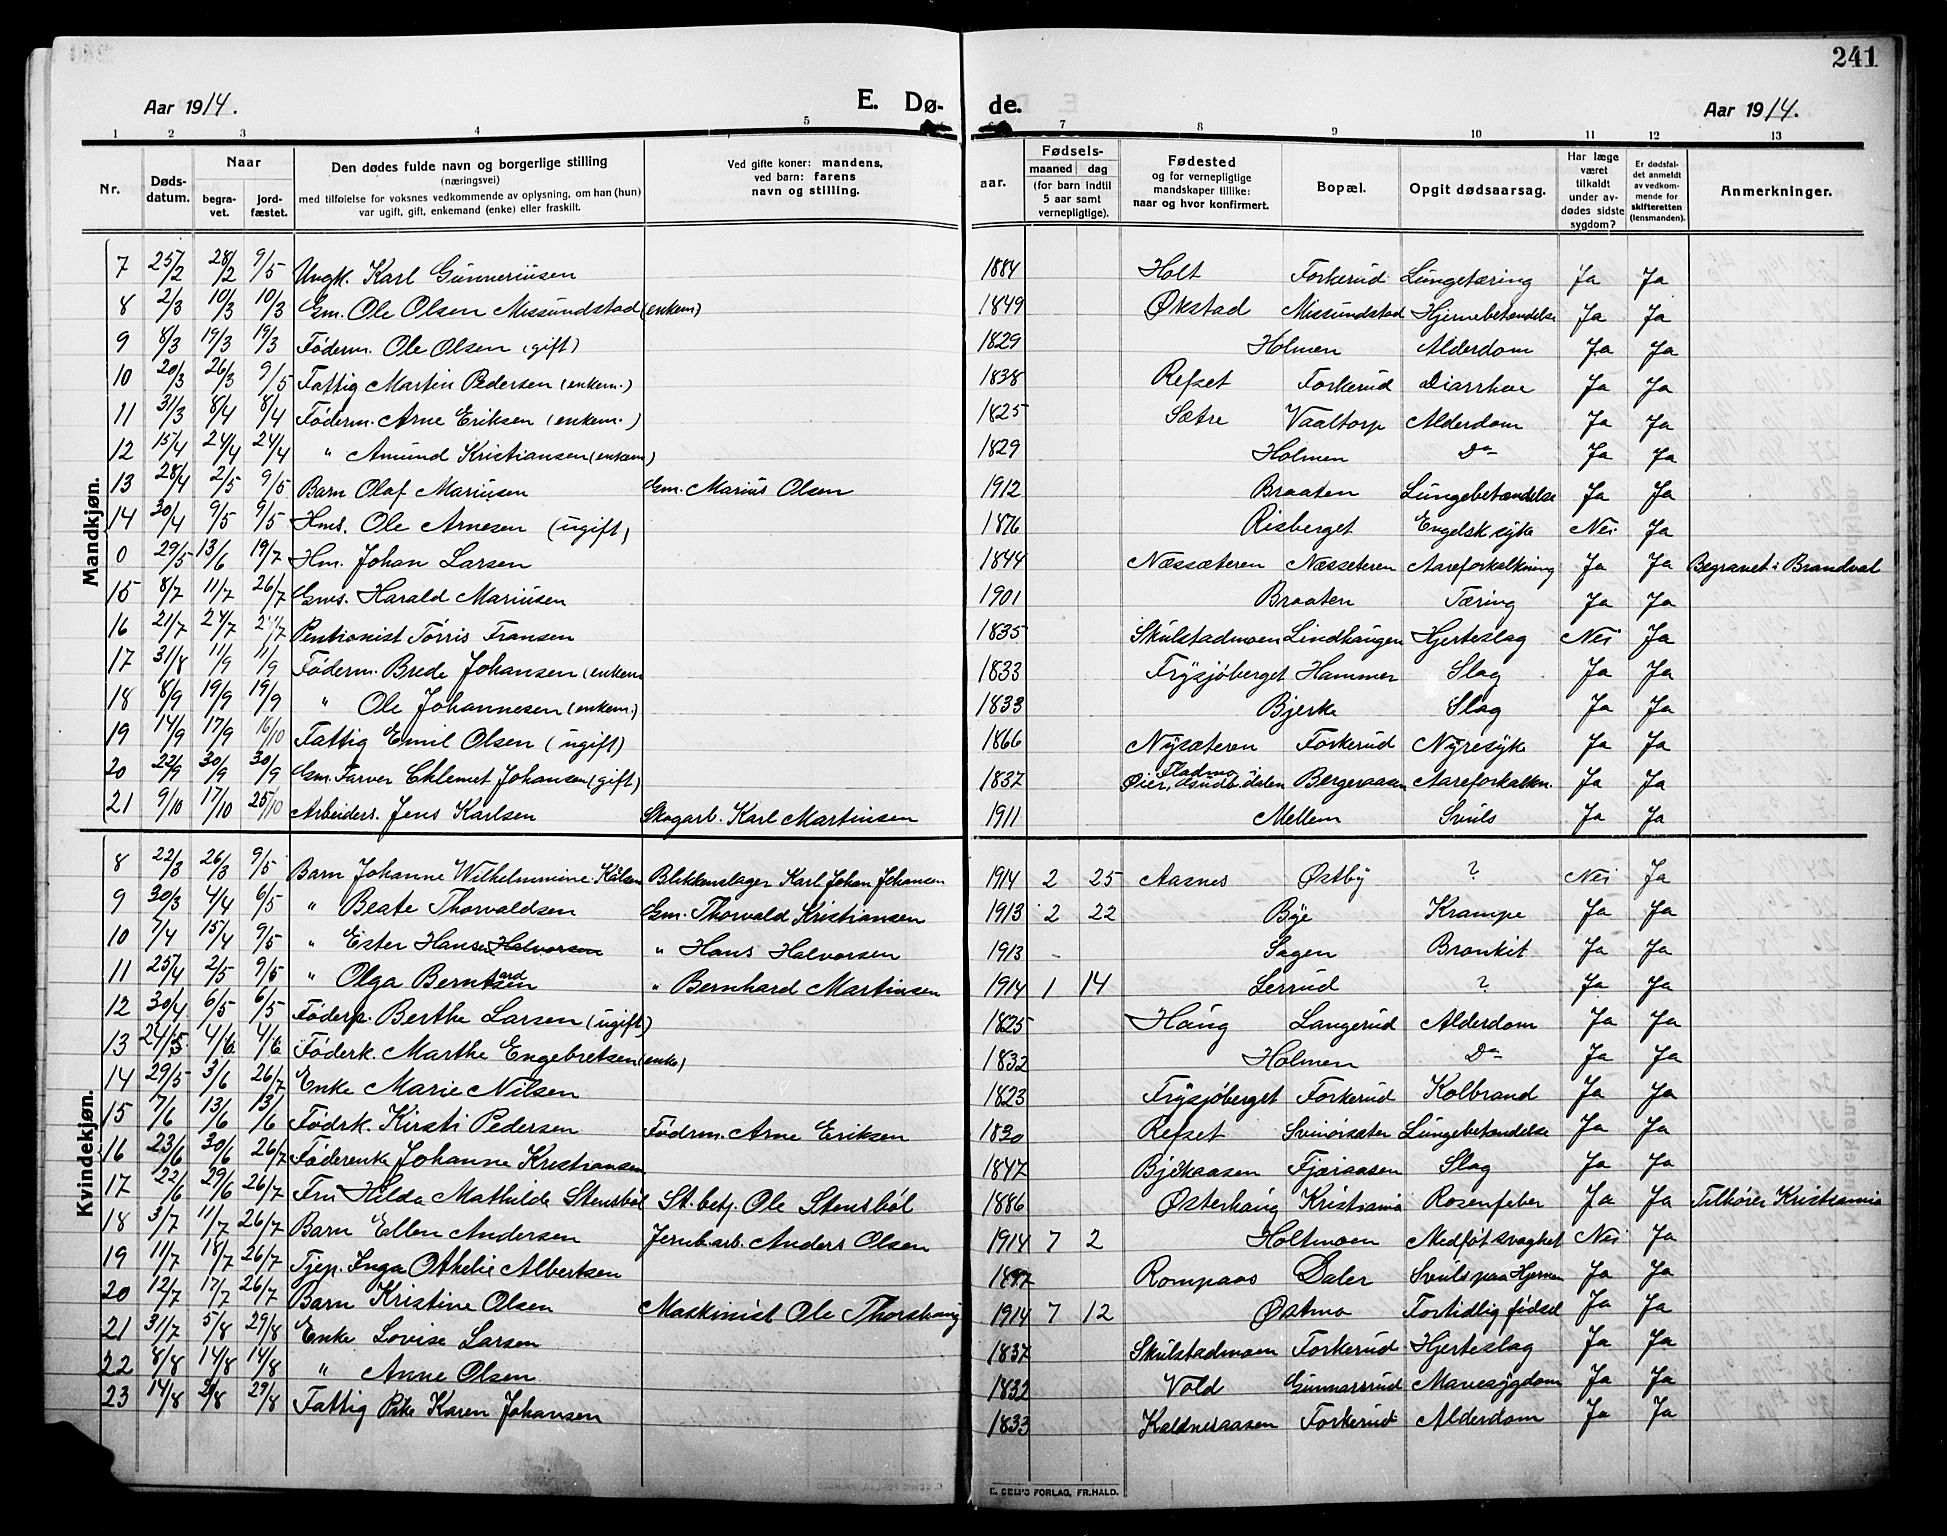 241
Aar 1914.
E. Dø- de.
Aar 1914.
1 2 3 4 5 7 8 9 10 11 12 13
Nr. Dødsdatum. Naar begravet. jordfæstet. Den dødes fulde navn og borgerlige stilling (næringsvei) med tilføielse for voksnes vedkommende av oplysning, om han (hun) var ugift, gift, enkemand (enke) eller fraskilt. Ved gifte koner: mandens, ved barn: farens navn og stilling. Fødsels- aar. maaned dag (for barn indtil 5 aar samt vernepligtige). Fødested og for vernepligtige mandskaper tillike: naar og hvor konfirmert. Bopæl. Opgit dødsaarsag. Har læge været tilkaldt under avdødes sidste sygdom? Er dødsfaldet anmeldt av vedkommende for skifteretten (lensmanden). Anmerkninger.
Mandkjøn.
7 25/2 28/2 9/5 Ungk. Karl Gunneriusen 1884 Holt Forkerud Lungetæring Ja Ja
8 2/3 10/3 10/3 Gm. Ole Olsen Missundstad (enkem) 1849 Økstad Missundstad Hjernebetændelse Ja Ja
9 8/3 19/3 19/3 Føderm. Ole Olsen (gift) 1829 Holmen Alderdom Ja Ja
10 20/3 26/3 9/5 Fattig Martin Pedersen (enkem.) 1838 Refset Forkerud Diarrhoe Ja Ja
11 31/3 8/4 8/4 Føderm. Arne Eriksen (enkem.) 1825 Sætre Vaaltorp Alderdom Ja Ja
12 15/4 24/4 24/4 " Amund Kristiansen (enkem) 1829 Holmen Do Ja Ja
13 28/4 2/5 9/5 Barn Olaf Mariusen Gm. Marius Olsen 1912 Braaten Lungebetændelse Ja Ja
14 30/4 9/5 9/5 Hms. Ole Arnesen (ugift) 1876 Risberget Engelsk syke Nei Ja
0 29/5 13/6 19/7 Hm. Johan Larsen 1844 Næssæteren Næsseteren Aareforkalkning Ja Ja Begravet i Brandval
15 8/7 11/7 26/7 Gms. Harald Mariusen 1901 Braaten Tæring Ja Ja
16 21/7 27/7 27/7 Pentionist Tørris Fransen 1835 Skulstadmoen Lindhaugen Hjerteslag Nei Ja
17 31/8 11/9 11/9 Føderm. Brede Johansen (enkem 1833 Frysjøberget Hammer Slag Ja Ja
18 8/9 19/9 19/9 " Ole Johannesen (enkem.) 1833 Bjerke Slag Ja Ja
19 14/9 17/9 16/10 Fattig Emil Olsen (ugift) 1866 Nysæteren Forkerud Nyresyke Ja Ja
20 22/9 30/9 30/9 Gm. Farver Chlemet Johansen (gift) 1837 Fladmo i Øier, Gudb.dalen Bergeraaen Aareforkalkn. Ja Ja
21 9/10 17/10 25/10 Arbeiders. Jens Karlsen Skogarb. Karl Martinsen 1911 Mellem Svuls Ja Ja
Kvindekjøn.
8 22/3 26/3 9/5 Barn Johanne Wilhelmmine Kålsen Blikkenslager Karl Johan Johansen 1914 2 25 Aasnes Østby ? Nei Ja
9 30/3 4/4 6/5 " Beate Thorvaldsen Gm. Thorvald Kristiansen 1913 2 22 Bye Krampe Ja Ja
10 7/4 15/4 9/5 " Ester Hansen Halvorsen " Hans Halvorsen 1913 - Sagen Bronkit Ja Ja
11 25/4 2/5 9/5 " Olga Berntsen ard " Bernhard Martinsen 1914 1 14 Lerrud ? Ja Ja
12 30/4 6/5 6/5 Føderp. Berthe Larsen (ugift) 1825 Haug Langerud Alderdom Ja Ja
13 24/5 4/6 4/6 Føderk. Marthe Engebretsen (enke) 1832 Holmen Do Ja Ja
14 29/5 3/6 26/7 Enke Marie Nilsen 1823 Frysjøberget Forkerud Kolbrand Ja Ja
15 7/6 13/6 13/6 Fødrk. Kirsti Pedersen Fødrm. Arne Eriksen 1830 Refset Svinoisæter Lungebetændelse Ja Ja
16 23/6 30/6 26/7 Føderenke Johanne Kristiansen 1847 Bjekaasen Fjæraasen Slag Ja Ja
17 22/6 29/6 26/7 Fru Hilda Mathilde Stensbøl St.betj. Ole Stensbøl 1886 Østerhaug Kristiania Rosenfeber Ja Ja Tilhører Kristiania
18 3/7 11/7 26/7 Barn Ellen Andersen Jernb.arb. Anders Olsen 1914 7 2 Holtmoen Medføt svaghet Nei Ja
19 11/7 18/7 26/7 Tjep. Inga Othelie Albertsen 1897 Rompaas Daler Svuls paa Hjernen Ja Ja
20 12/7 17/7 26/7 Barn Kristine Olsen Maskinist Ole Thorshaug 1914 7 12 Østmo Fortidlig fødsel Ja Ja
21 31/7 5/8 29/8 Enke Lovise Larsen 1837 Skulstadmoen Forkerud Hjerteslag Ja Ja
22 8/8 14/8 14/8 " Anne Olsen 1832 Vold Gunnarsrud Mavesygdom Ja Ja
23 14/8 21/8 29/8 Fattig Pike Karen Johansen 1833 Kaldneraasen Forkerud Alderdom Ja Ja
E. SEM'S FORLAG, FR.HALD.